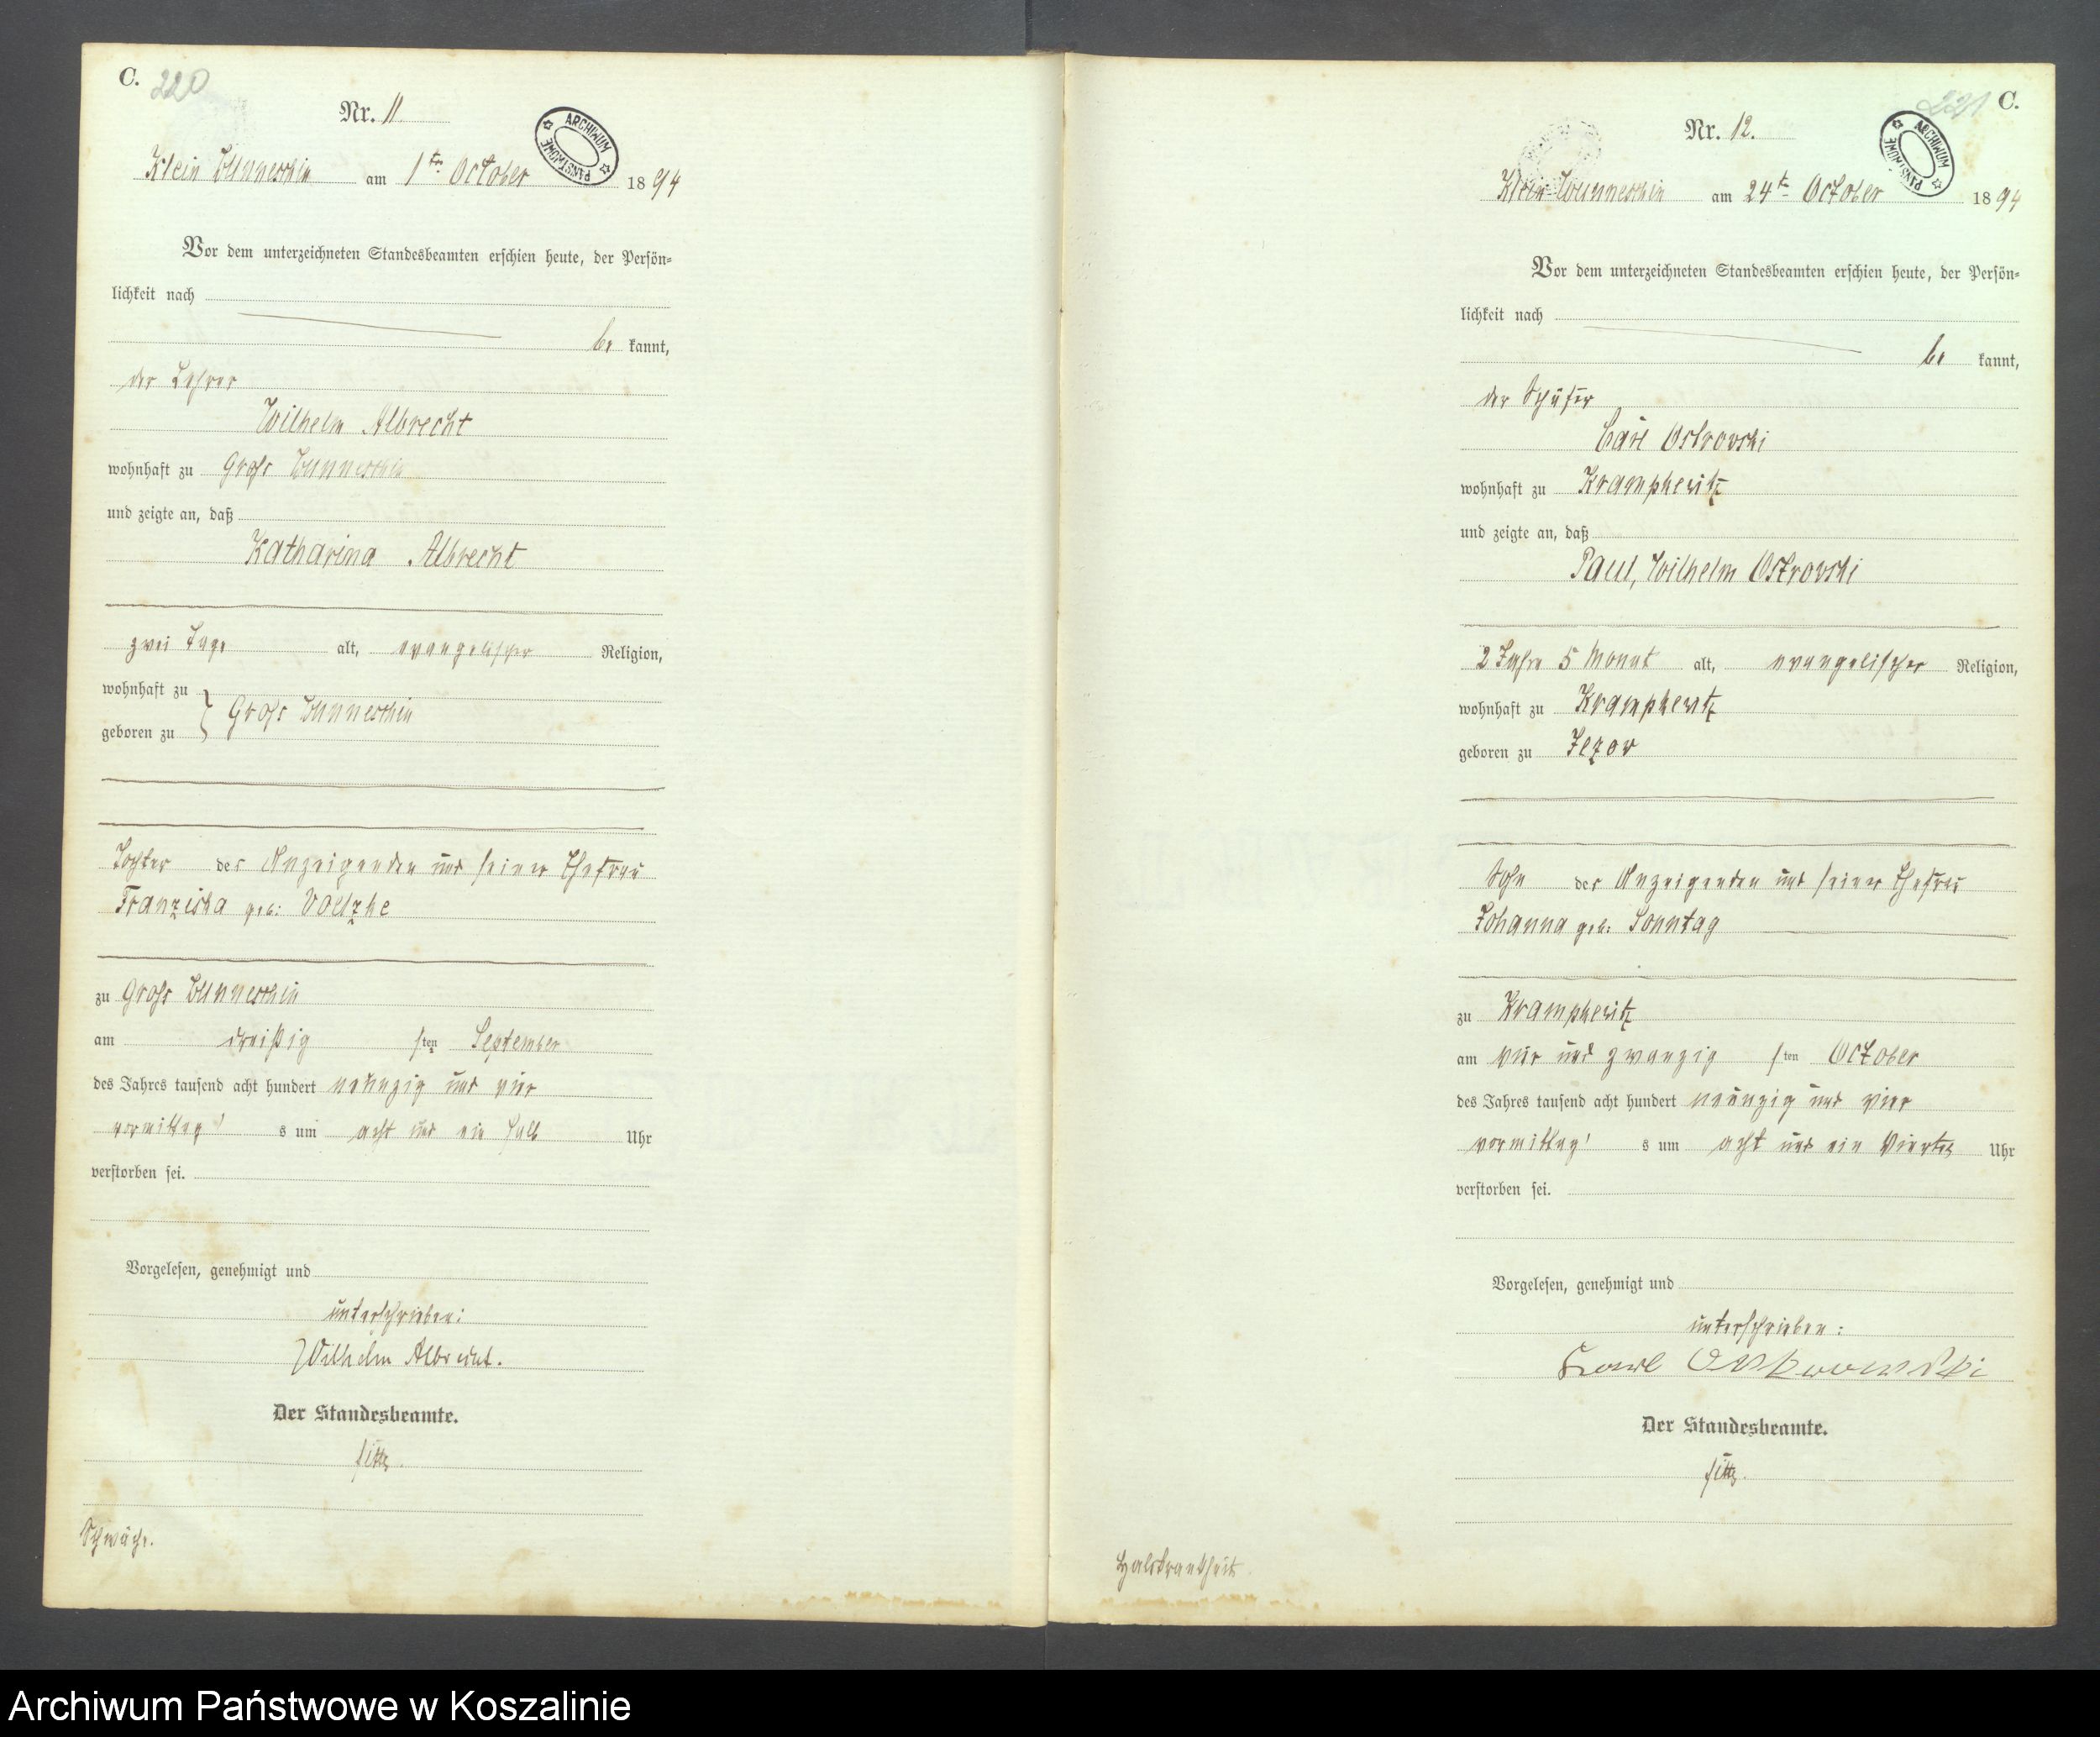 C. 220
Nr. 11
ARCHIWUM PAŃSTWOWE
Klein Wunneschin am 1ten October 1894
Vor dem unterzeichneten Standesbeamten erschien heute, der Persön-
lichkeit nach
be kannt,
der Lehrer
Wilhelm Albrecht
wohnhaft zu Gross Wunneschin
und zeigte an, daß
Katharina Albrecht
zwei Tage alt, evangelischer Religion,
wohnhaft zu
Gross Wunneschin
geboren zu
Tochter des Anzeigenden und seiner Ehefrau
Franziska geb: Voelzke
zu Gross Wunneschin
am dreißig sten September
des Jahres tausend acht hundert neunzig und vier
vormittag s um acht und ein halb Uhr
verstorben sei.
Vorgelesen, genehmigt und
unterschrieben:
Wilhelm Albrecht.
Der Standesbeamte.
Schwäche.
221 C.
Nr. 12.
ARCHIWUM PAŃSTWOWE
Klein Wunneschin am 24t October 1894
Vor dem unterzeichneten Standesbeamten erschien heute, der Persön-
lichkeit nach
be kannt,
der Schäfer
Carl Ostrovski
wohnhaft zu Krampkewitz
und zeigte an, daß
Paul, Wilhelm Ostrovski
2 Jahre 5 Monat alt, evangelischer Religion,
wohnhaft zu Krampkewitz
geboren zu Jezow
Sohn des Anzeigenden und seiner Ehefrau
Johanna geb: Sonntag
zu Krampkewitz
am vier und zwanzig sten October
des Jahres tausend acht hundert neunzig und vier
vormittag s um acht und ein Viertel Uhr
verstorben sei.
Vorgelesen, genehmigt und
unterschrieben:
Karl Ostrowski
Der Standesbeamte.
Halskrankheit.
Archiwum Państwowe w Koszalinie